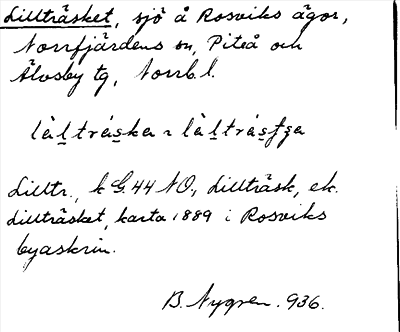 Lillträsket, sjö å Rosviks ägor,
Norrfjärdens sn, Piteå och
Älvsby tg, Norrb. l.
làl̲trás̲ka ~ làl̲trás̲
Lilltr., k G. 44 NO., Lillträsk, ek.
Lillträsket, karta 1889 i Rosviks
byaskrin.
B. Nygren. 936.